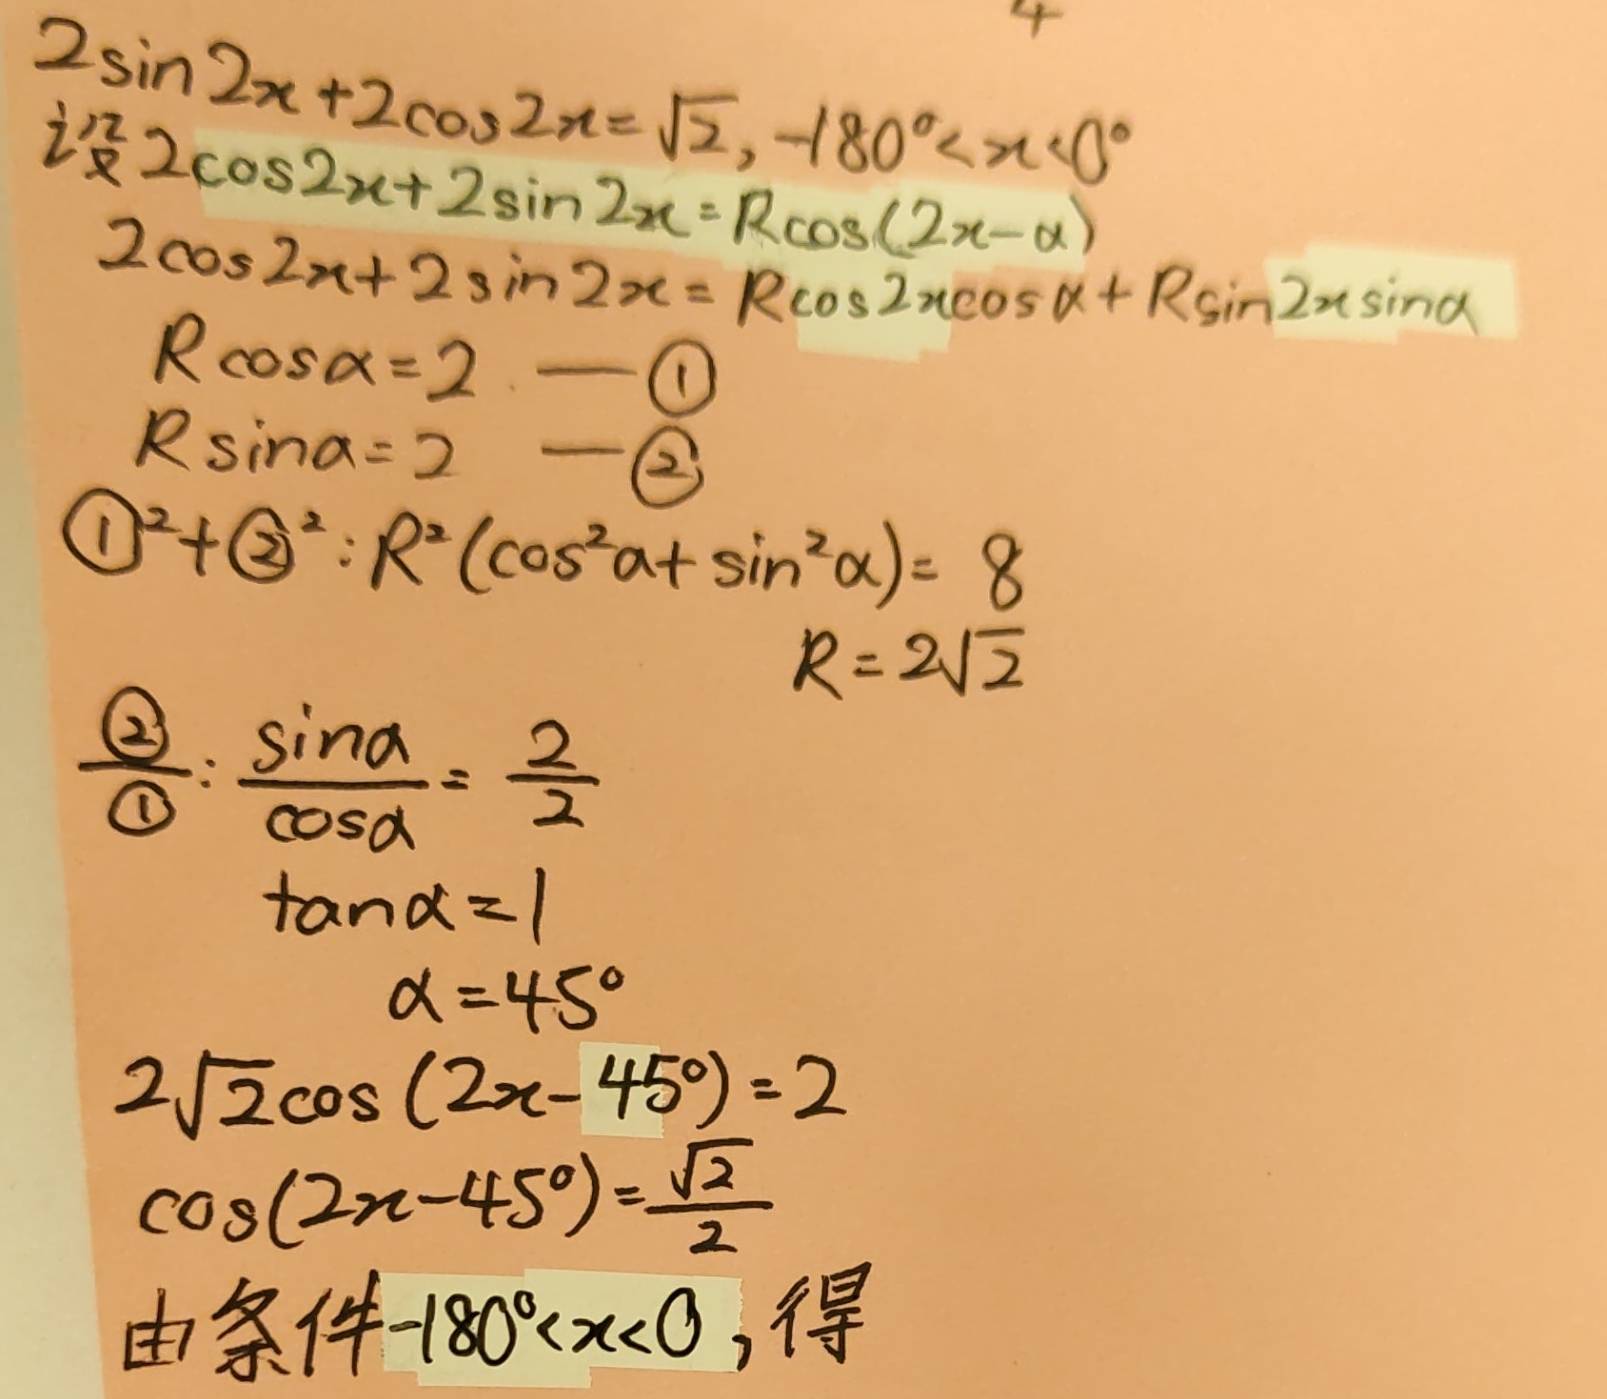 4
2sin2x+2cos2x=√2, -180°<x<0°
设2cos2x+2sin2x=Rcos(2x-α)
2cos2x+2sin2x=Rcos2xcosα+Rsin2xsinα
Rcosα=2 —①
Rsinα=2 —②
①²+②²:R²(cos²α+sin²α)=8
R=2√2
②/①: sinα/cosα=2/2
tanα=1
α=45°
2√2cos(2x-45°)=2
cos(2x-45°)=√2/2
由条件-180°<x<0,得